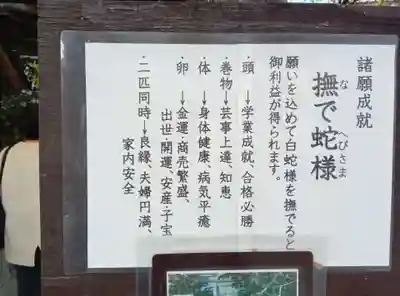 諸願成就
撫で蛇様
な
へびさま
願いを込めて白蛇様を撫でると
御利益が得られます。
・頭 →学業成就、合格必勝
・巻物→芸事上達、知恵
・体 →身体健康、病気平癒
・卵 →金運・商売繁盛、
出世・開運、安産・子宝
・二匹同時→良縁、夫婦円満、
家内安全